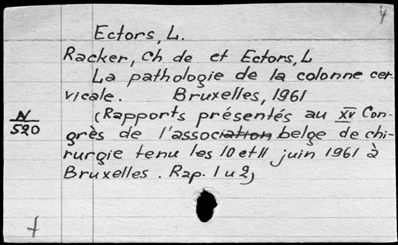 Ectors, L.
Racker, Ch de et Ectors, L
La pathologie de la colonne cer-
vicale. Bruxelles, 1961
(Rapports présentés au XV Con-
grès de l'association belge de chi-
rurgie tenu les 10 et 11 juin 1961 à
Bruxelles. Rap. 1 u 2)
N
520